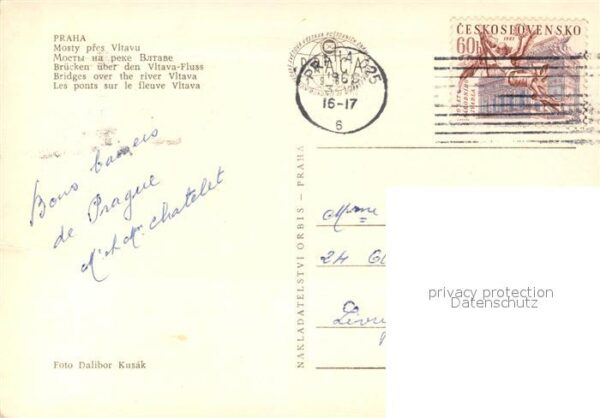 PRAHA
Mosty přes Vltavu
Мосты на реке Влтаве
Brücken über den Vltava-Fluss
Bridges over the river Vltava
Les ponts sur le fleuve Vltava
Bons baisers
de Prague
Mr & Mme Chatelet
Foto Dalibor Kusák
NAKLADATELSTVÍ ORBIS - PRAHA
PRAHA 25
16-17
6
ČESKOSLOVENSKO
60h
Mme
24
privacy protection
Datenschutz